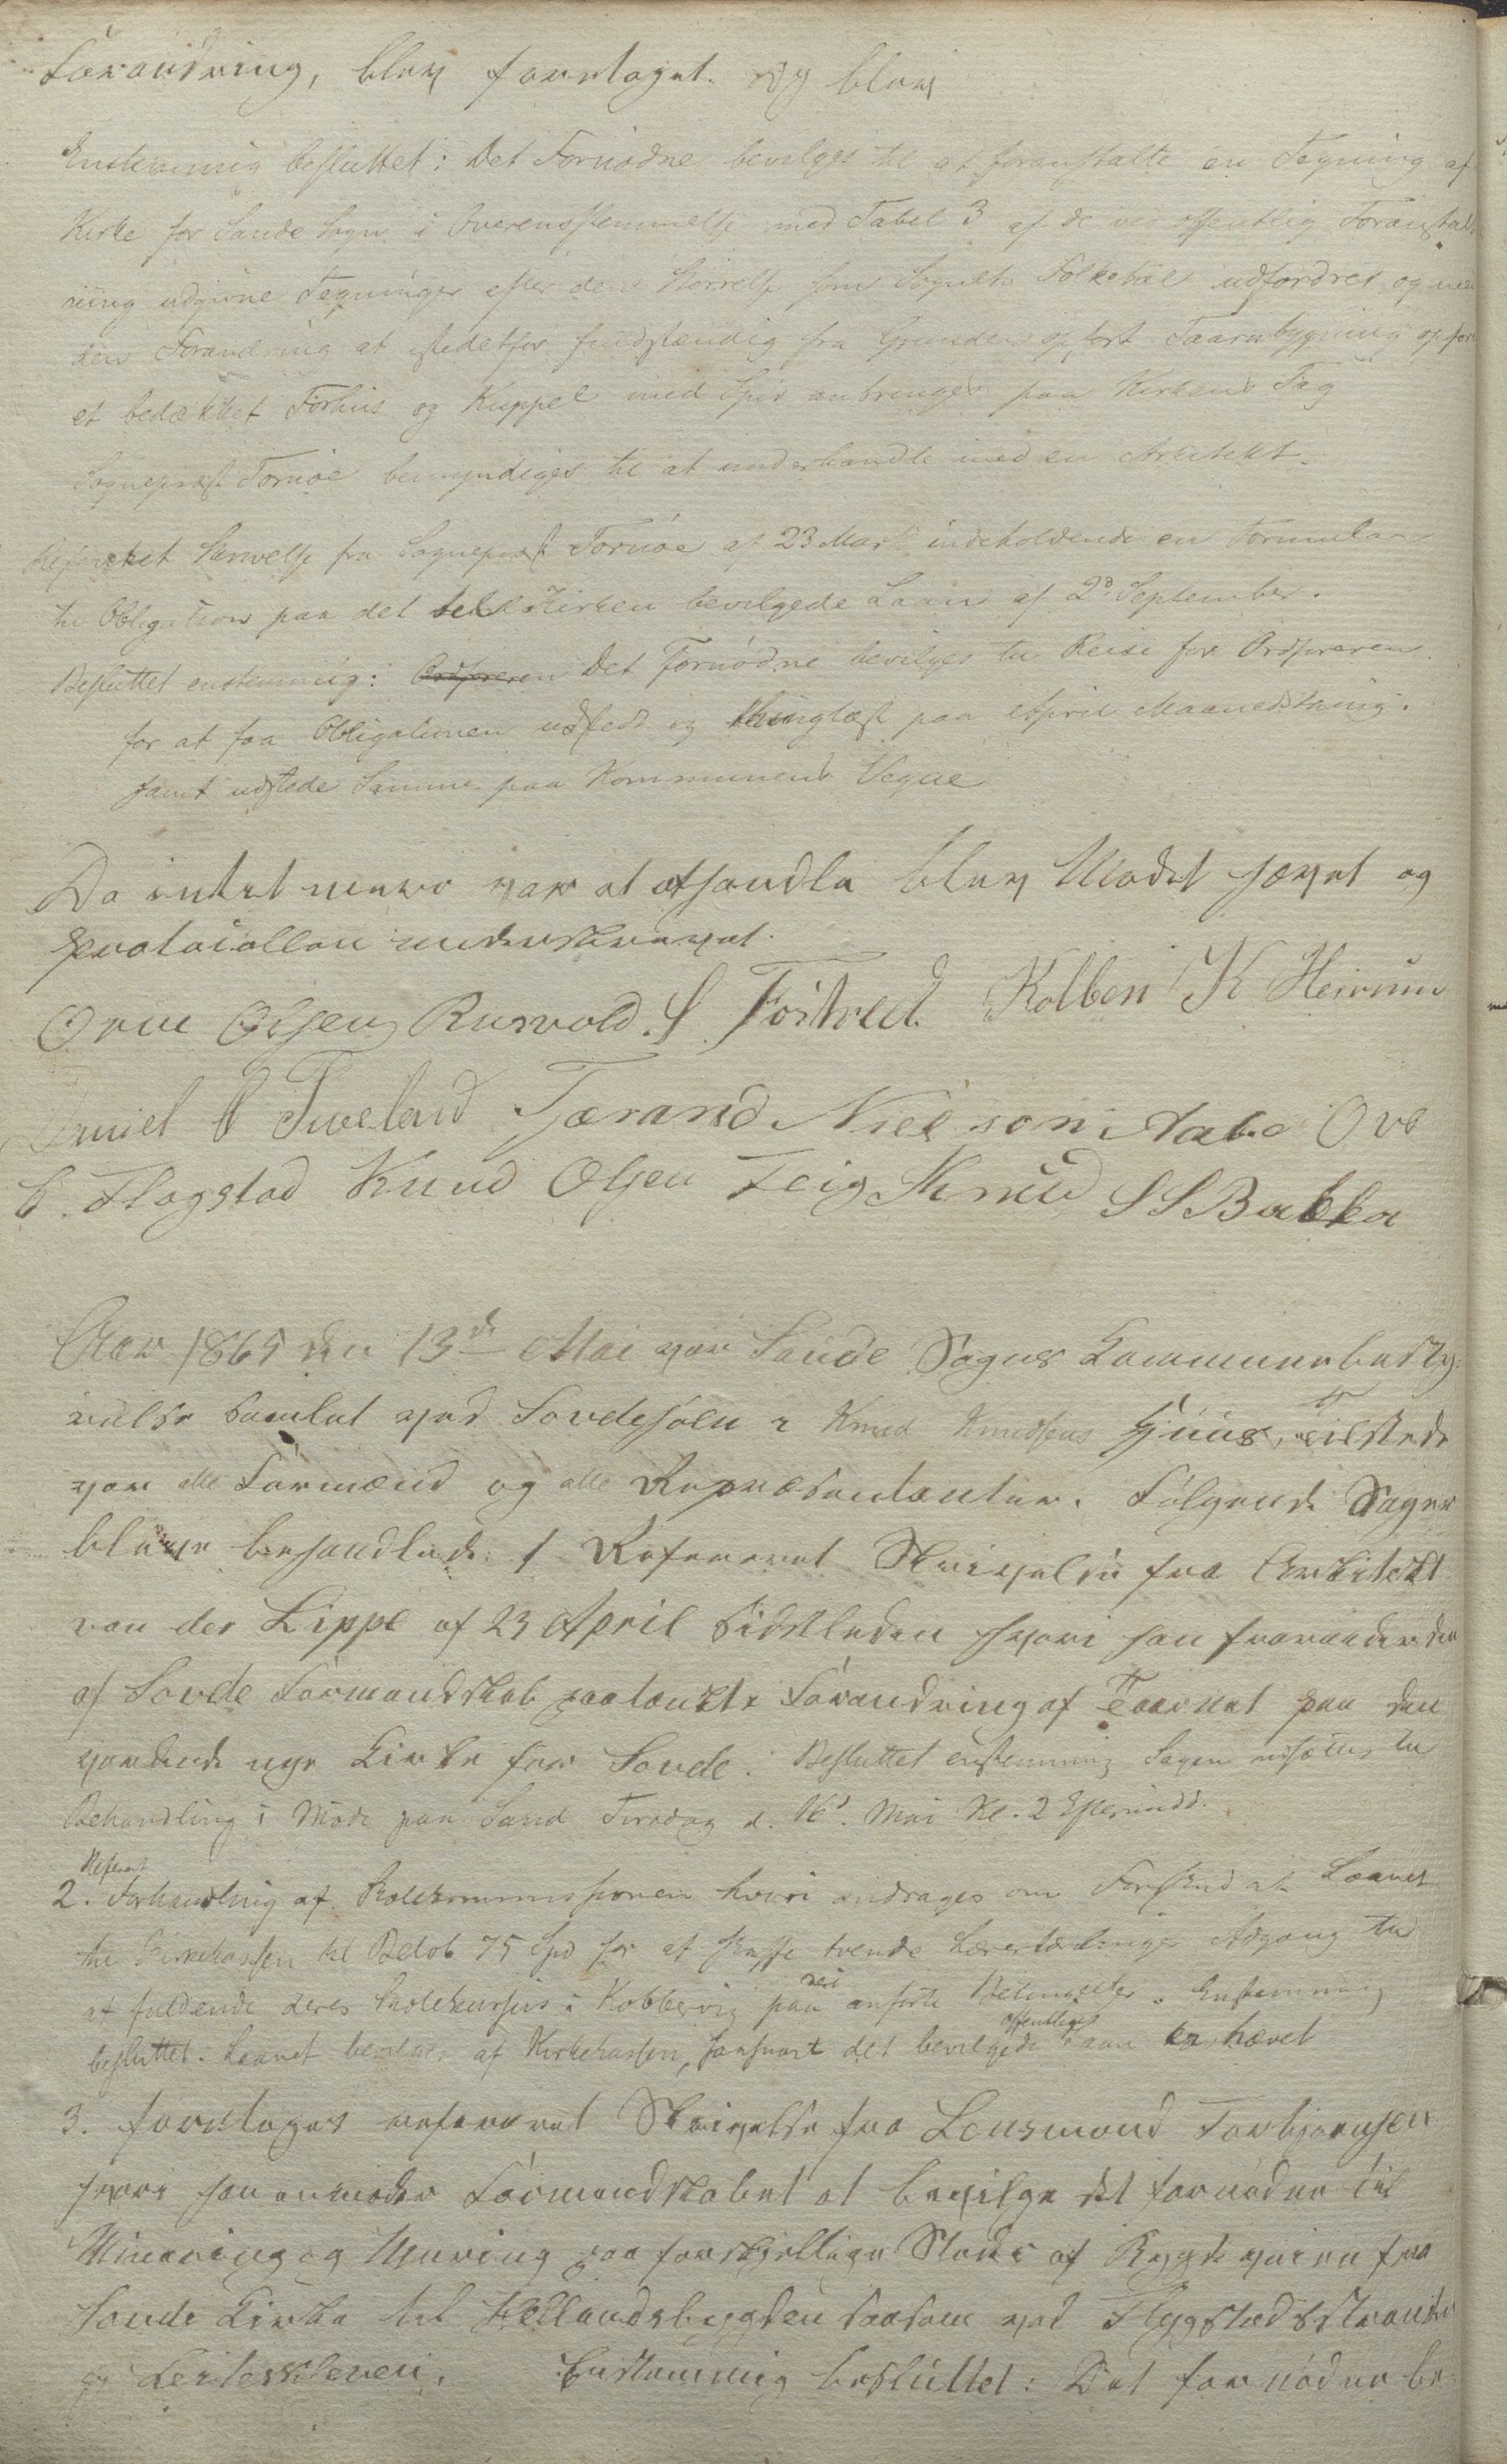 Forandring, blev foretaget. og blev
Enstemmig besluttet: Det Fornødne bevilges til at foranstalte en Tegning af
Kirke for Sande Sogn i Overensstemmelse med Tabel 3 af de ved offentlig Foranstalt
ning udgivne Tegninger efter den Størrelse som Sognets Folketal udfordres og med
den Forandring at istedetfor fuldstændig fra Grunden opført Taarnbygning opføres
et bedækket Forhus og Kuppel med Spir anbringes paa Kirkens Tag
Sognepræst Tornøe bemyndiges til at underhandle med en Arkitekt.
Refereret Skrivelse fra Sognepræst Tornøe af 23 Marts indeholdende en Formular
til Obligation paa det til Kirken bevilgede Laan af 2d September.
Besluttet enstemmig: Ordføreren Det Fornødne bevilges til Reise for Ordføreren
for at faa Obligationen udstedt og thinglæst paa April Maanedsting.
samt udstede Samme paa Kommunens Vegne
Da intet mere var at afhandle blev Mødet hævet og
Protocollen underskrevet.
Orm Olsen Rusvold. S Fostved. Kolben K Heirum
Daniel O Tveland Tærand Nielson Aabø Ove
C. Flogstad Knud Olsen Teig Knud S S Bakka
Aar 1865 den 13de Mai var Sande Sogns Kommunebesty:
relse samlet ved Sovdesøen i Knud Knudsens Huus, tilstede
var alle Formænd og alle Repræsentanter. Følgende Sager
bleve behandlede: 1 Refereret Skrivelse fra Arkitekt
von der Lippe af 23 April sidstleden hvori han fraraader den
af Sovde Formandskab paatænkte Forandring af Taarnet paa den
vordende nye Kirke for Sovde. Besluttet enstemmig Sagen udsættes til
Behandling i Møde paa Sand Tirsdag d. 16d. Mai Kl. 2 Eftermidd.
Referert
2. Forhandling af Skolekommissionen hvori andrages om Forskud at Laanet
til Kirkekassen til Beløb 75 Spd for at skaffe tvende Lærerlærlinger Adgang til
at fuldende deres Skolekursus i Kobbervig paa neri anførte Betingelser. Enstemmig
besluttet. Laanet bevilges af Kirkekassen, saasnart det bevilgede offentlige Laan er hævet
3. foretoges refereret Skrivelse fra Lensmand Torbjørnsen
hvori han anmoder Formandskabet at bevilge det fornødne til
Minering og Muring paa forskjellige Steder af Bygdeveien fra
Sovde Kirke til Hellandsbygden saasom ved Flogstadsstranden
og Leiteskleven. Enstemmig besluttet: Det fornødne be